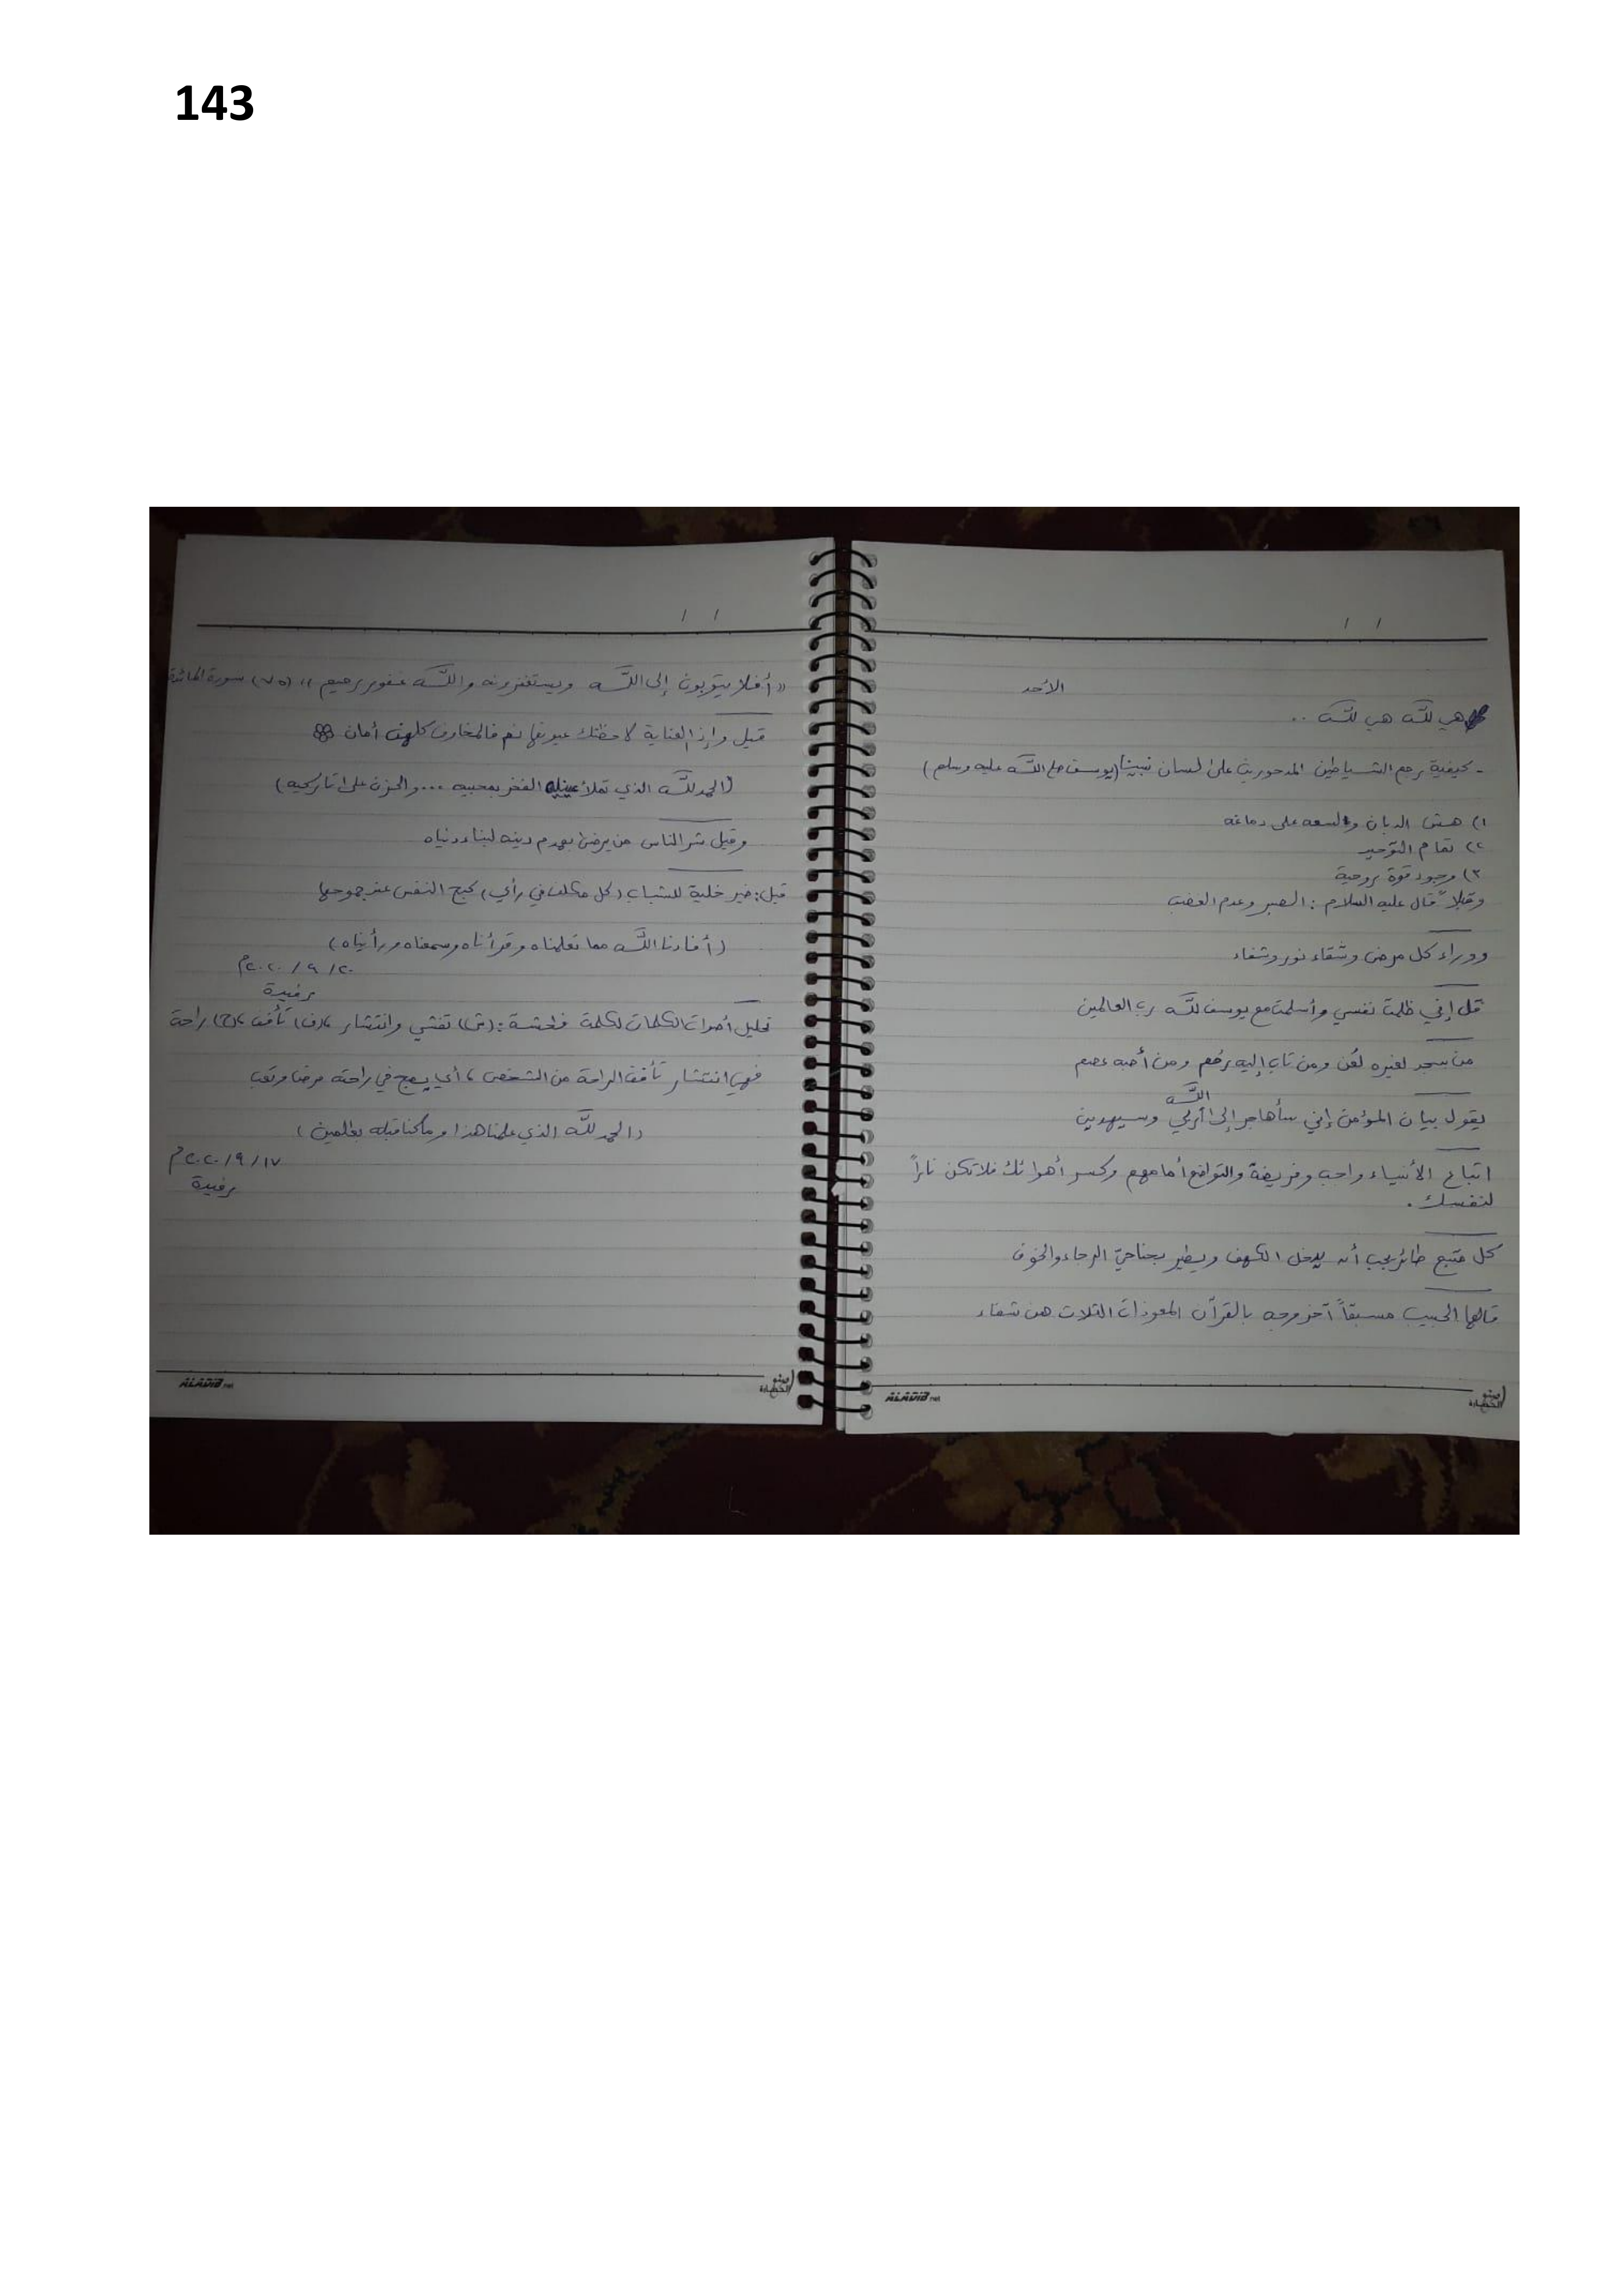 143
/ /
الأحد
هي للّه هي للّه ..
- كيفية رجم الشياطين المدحورين على لسان نبينا (يوسف صلى اللّه عليه وسلم)
١) هش الدبان والسعه على دماغه
٢) تمام التوحيد
٣) وجود قوة روحية
وقبلاً قال عليه السلام : الصبر وعدم الغضب
ووراء كل مرض وشقاء نور وشفاء
قل إني ظلمت نفسي وأسلمت مع يوسف للّه رب العالمين
من سجد لغيره لُعن ومن تاب إليه رُحم ومن أحبه عصم
اللّه
يقول بيان المؤمن إني سأهاجر إلى ربي وسيهدين
اتباع الأنبياء واجب وفريضة والتواضع أمامهم وكسر أهوائك فلا تكن ناراً
لنفسك .
كل متبع طائر يجب أن يدخل الكهف ويطير بجناحيّ الرجاء والخوف
قالها الحبيب مسبقاً آخر مرجه بالقرآن المعوذات الثلاث هن شفاء
ALADIB.net
/ /
« أفلا يتوبون إلى اللّه ويستغفرونه واللّه غفور رحيم » (٧٥) سورة المائدة
قيل وإذا العناية لاحظتك عيونها نم فالمخاوف كلهن أمان
(الحمد للّه الذي تملأ عينيه الفخر بمحبيه ... والحزن على تاركيه)
وقيل شر الناس من يرضى بهدم دينه لبناء دنياه
قيل: خير خلية للشباب (كل مكلف في رأي) كبح النفس عند جموحها
(أفادنا اللّه مما تعلمناه وقرأناه وسمعناه ورأيناه)
٢٠ / ٩ / ٢٠٢٠م
رفيدة
تحليل أصوات الكلمات لكلمة فاحشة : (ش) تفشي وانتشار ، (ف) تأفف ، (ح) راحة
فهي انتشار تأفف الراحة من الشخص ، أي يصبح في راحته مرض وتعب
(الحمد للّه الذي علمنا هذا وما كنا قبله بعالمين)
١٧ / ٩ / ٢٠٢٠م
رفيدة
ALADIB.net